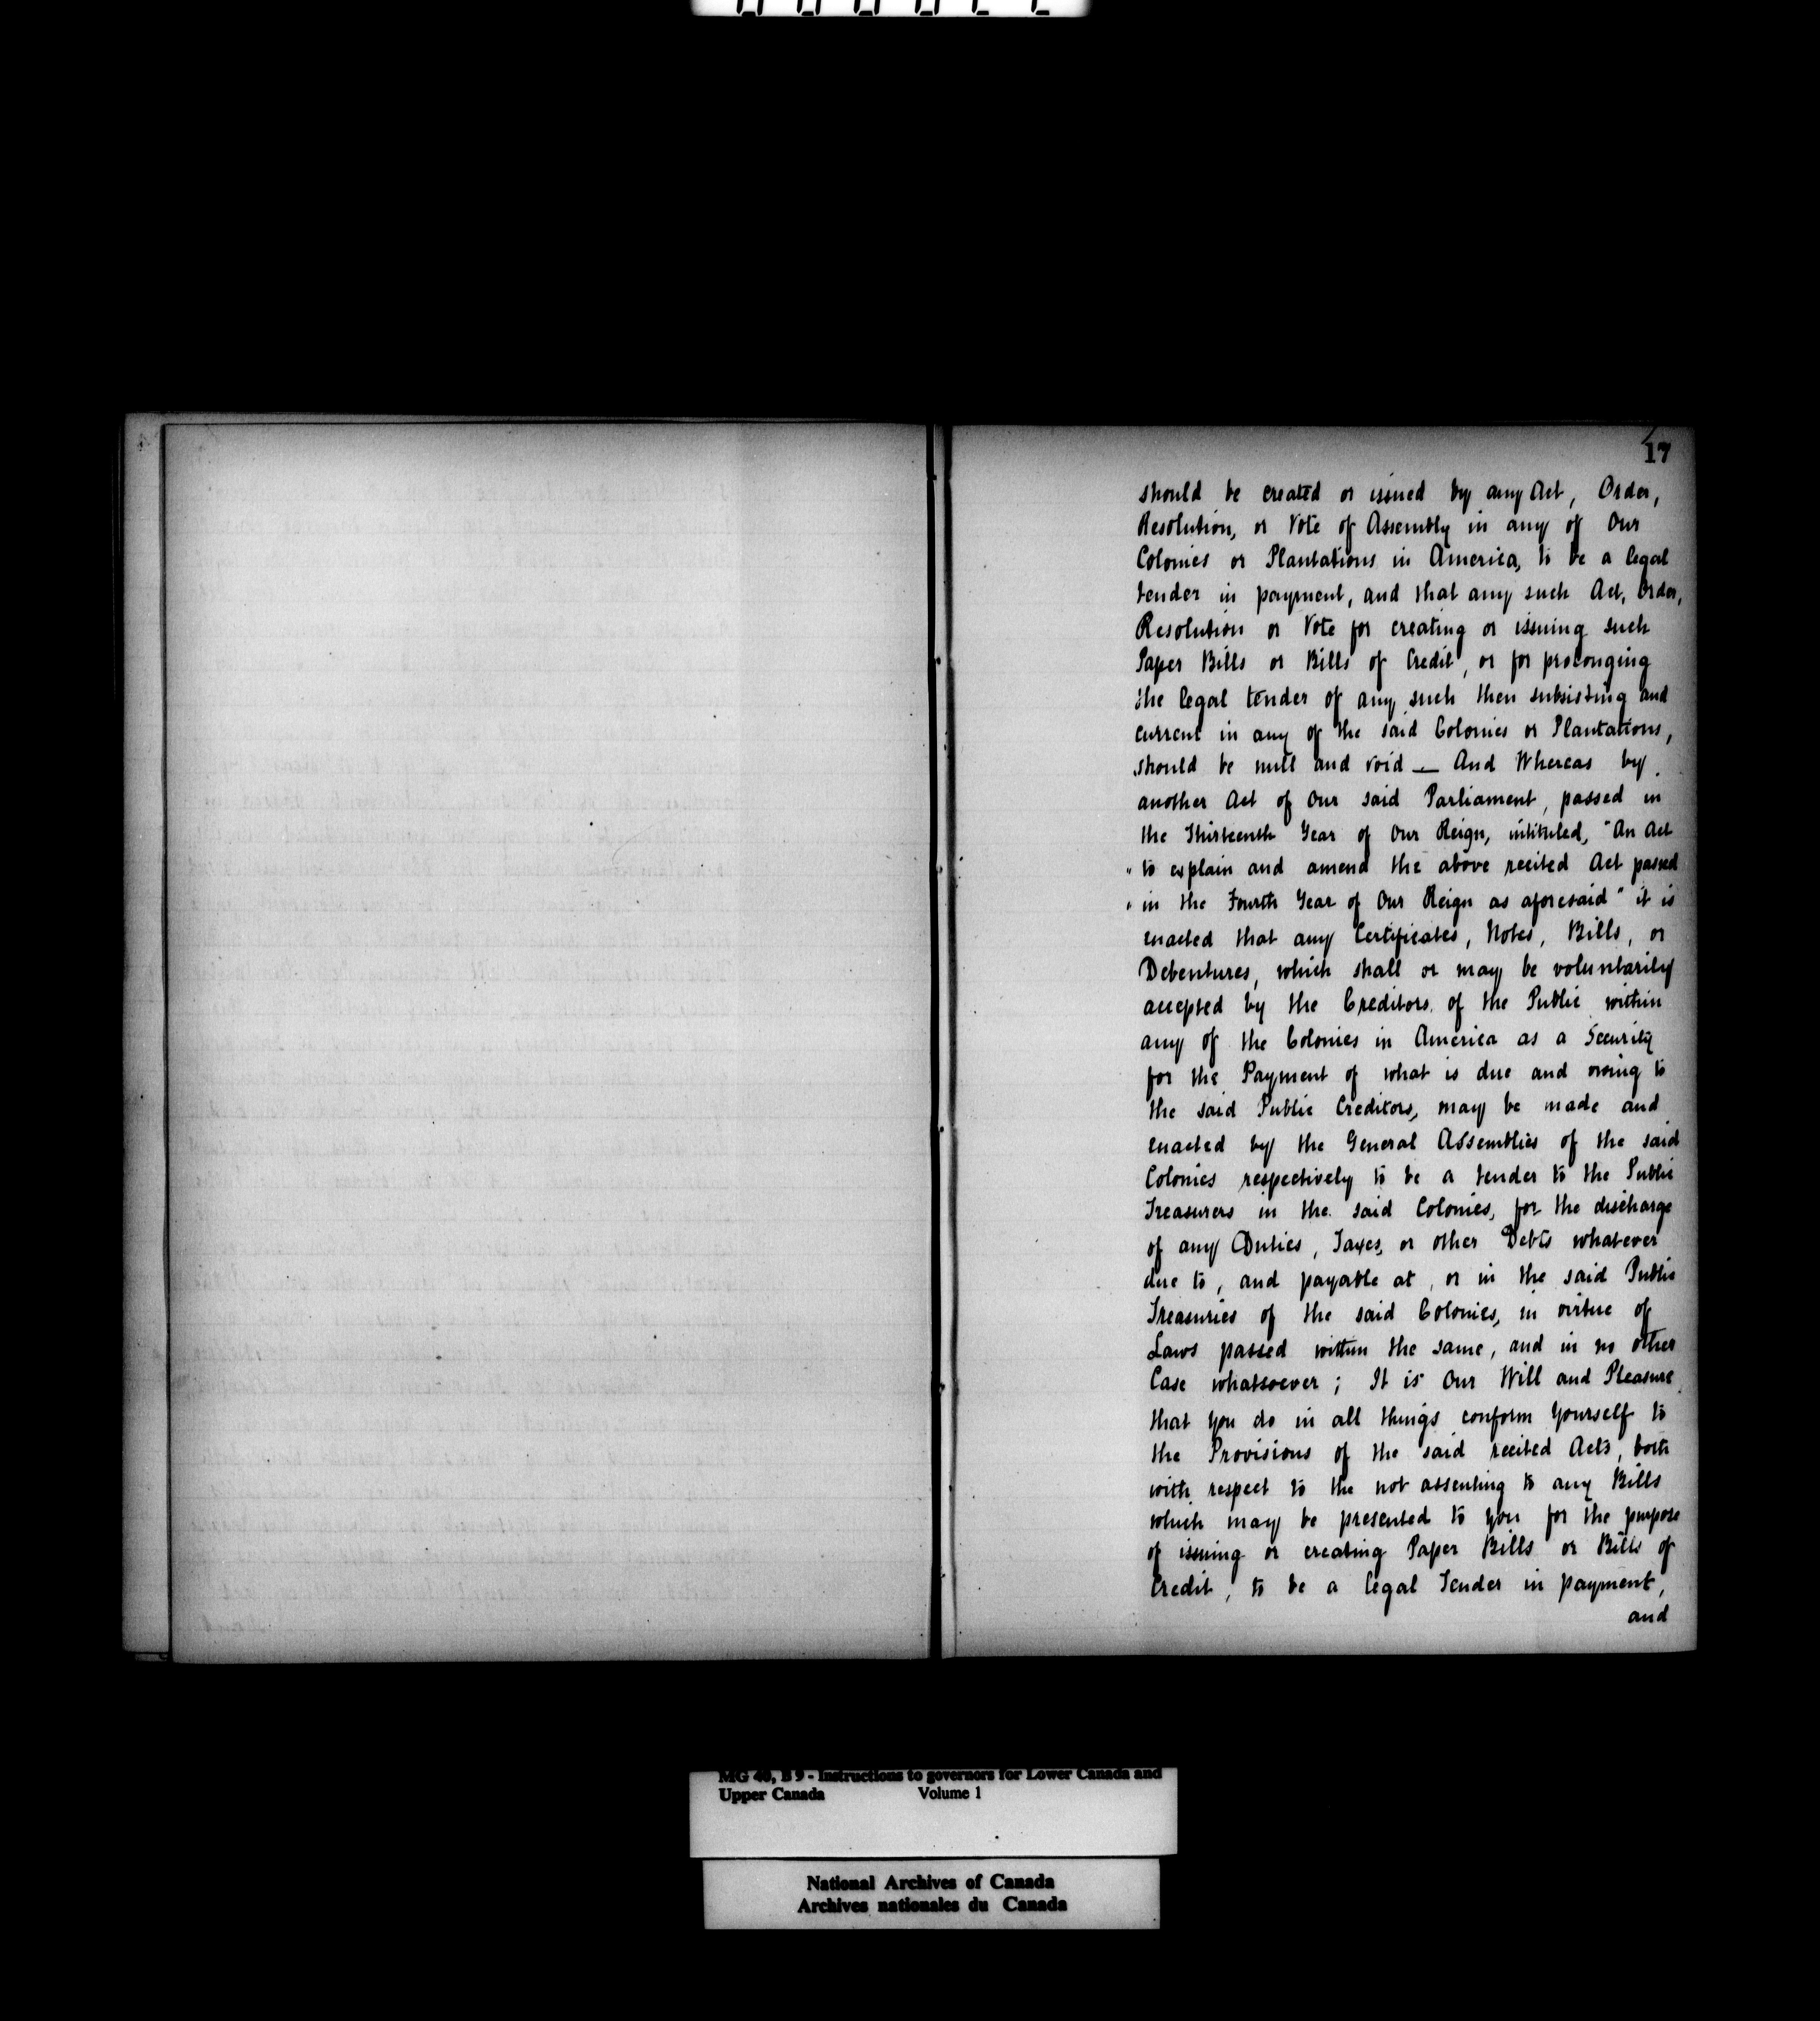 17
should be created or issued by any Act, Order,
Resolution, or Vote of Assembly in any of Our
Colonies or Plantations in America, to be a legal
tender in payment, and that any such Act, Order,
Resolution or Vote for creating or issuing such
Paper Bills or Bills of Credit, or for prolonging
the legal tender of any such then subsisting and
current in any of the said Colonies or Plantations,
should be null and void — And Whereas by
another Act of Our said Parliament, passed in
the Thirteenth Year of Our Reign, intituled, "An Act
" to explain and amend the above recited Act passed
" in the Fourth Year of Our Reign as aforesaid" it is
enacted that any Certificates, Notes, Bills, or
Debentures, which shall or may be voluntarily
accepted by the Creditors of the Public within
any of the Colonies in America as a Security
for the Payment of what is due and owing to
the said Public Creditors, may be made and
enacted by the General Assemblies of the said
Colonies respectively to be a tender to the Public
Treasurers in the said Colonies, for the discharge
of any Duties, Taxes, or other Debts whatever
due to, and payable at, or in the said Public
Treasuries of the said Colonies, in virtue of
Laws passed within the same, and in no other
Case whatsoever; It is Our Will and Pleasure
that you do in all things conform Yourself to
the Provisions of the said recited Acts, both
with respect to the not assenting to any Bills
which may be presented to you for the purpose
of issuing or creating Paper Bills or Bills of
Credit, to be a legal Tender in payment,
and
MG 40, B 9 - Instructions to governors for Lower Canada and
Upper Canada Volume 1
National Archives of Canada
Archives nationales du Canada